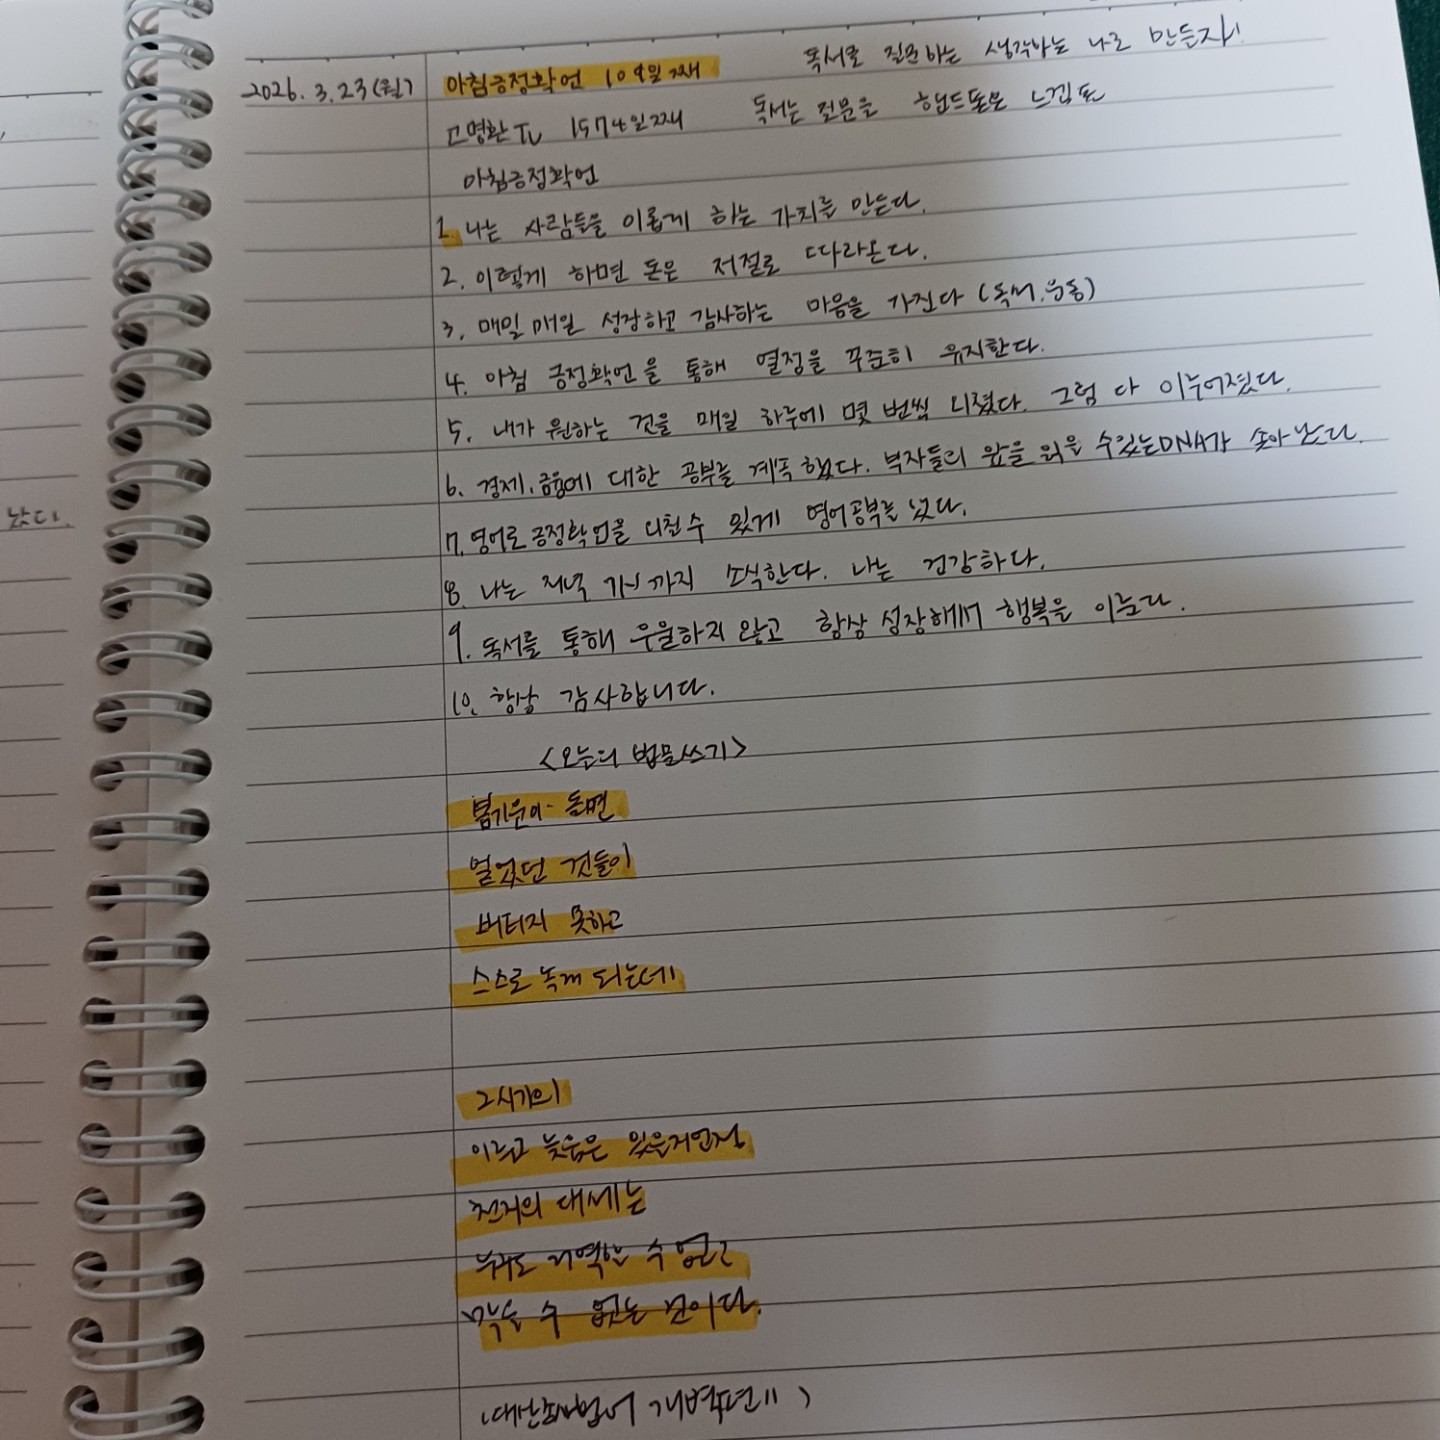 2026. 3. 23 (월) 아침긍정확언 109일째 독서로 질문하는 생각하는 나로 만든자!
고명환TV 1574일째 독서는 질문을 핸드폰은 느낌표
아침긍정확언
1. 나는 사람들을 이롭게 하는 가치를 만든다.
2. 이렇게 하면 돈은 저절로 따라온다.
3. 매일매일 성장하고 감사하는 마음을 가진다 (독서.운동)
4. 아침 긍정확언을 통해 열정을 꾸준히 유지한다.
5. 내가 원하는 것을 매일 하루에 몇 번씩 외쳤다. 그럼 다 이루어졌다.
6. 경제.금융에 대한 공부를 계속 했다. 부자들의 앞을 읽을 수있는DNA가 솟아 난다.
7. 영어로 긍정확언을 외칠수 있게 영어공부를 났다.
8. 나는 저녁 7시까지 소식한다. 나는 건강하다.
9. 독서를 통해 우울하지 않고 항상 성장해서 행복을 이룬다.
10. 항상 감사합니다.
<오늘의 법문쓰기>
봄기운이 돌면
얼었던 것들이
버티지 못하고
스스로 녹게 되는데
그시기의
이르고 늦음은 있을지언정
천지의 대세는
누구도 거역할 수 없고
막을 수 없는 것이다.
(대산종사법어 개벽편11)
났다.